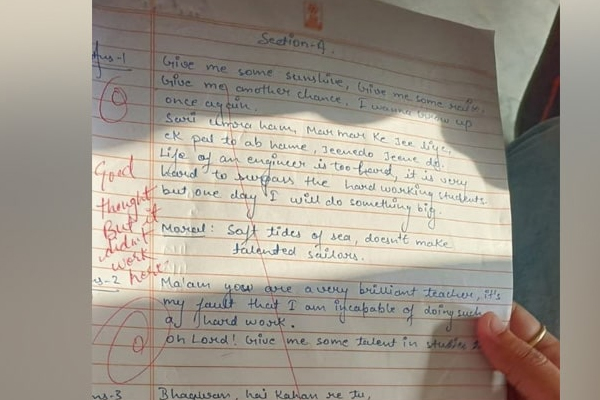 Section-A.
Ans-1
Give me some sunshine, Give me some rain,
Give me another chance, I wanna grow up
once again.
Sari umra ham, Marmar ke Jee liye,
ek pal to ab hame, Jeenedo Jeene do.
Life of an engineer is too hard, it is very
hard to surpass the hard working students
but one day I will do something big.
Moral: Soft tides of sea, doesn't make
talented sailors.
0
Good
thought
But it
didn't
work
here.
ns-2
Ma'am you are a very brilliant teacher, it's
my fault that I am incapable of doing such
a hard work.
Oh Lord! Give me some talent in studies
0
ns-3
Bhagwan, hai Kahan re Tu,